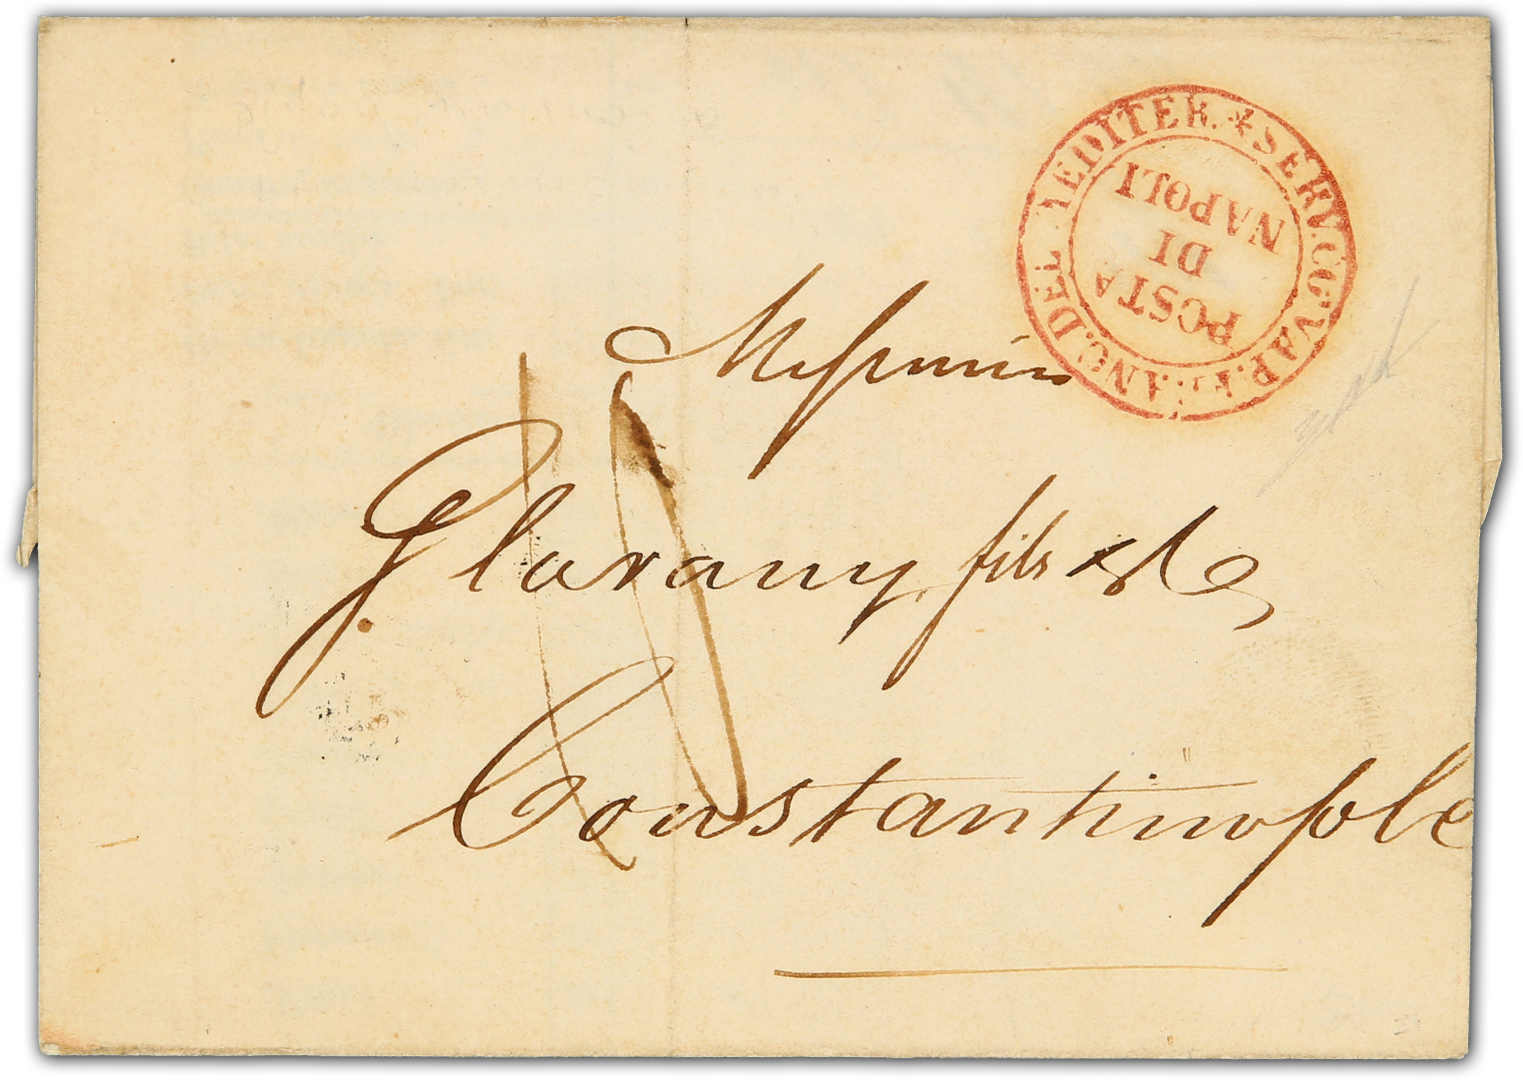 SERV. CO' VAP. FRANC. DEL MEDITER. *
POSTA
DI
NAPOLI
Messieurs
Glavany fils & Ce
Constantinople
10